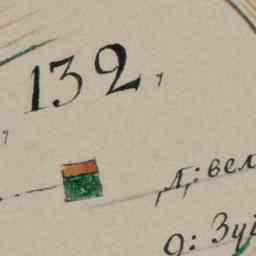 132,
Д: вел
9: Зуі